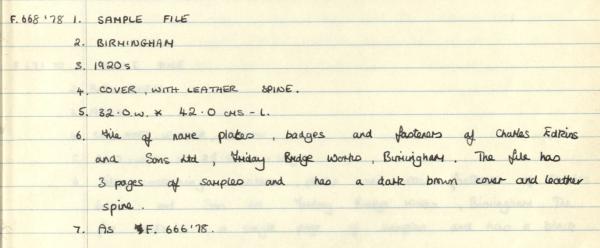 F.668'78 1. SAMPLE FILE
2. BIRMINGHAM
3. 1920s
4. COVER, WITH LEATHER SPINE.
5. 32.0.w. * 42.0 cms - L.
6. File of name plates, badges and fasteners of Charles Edkins
and Sons Ltd, Friday Bridge Works, Birmingham. The file has
3 pages of samples and has a dark brown cover and leather
spine.
7. As F. 666'78.